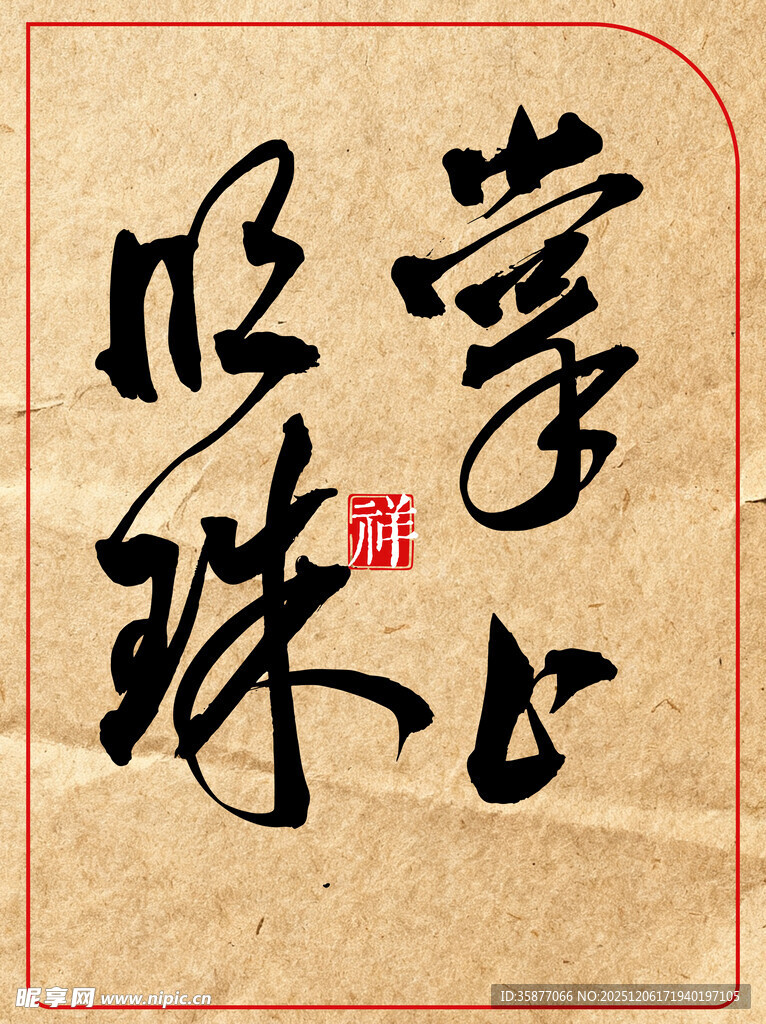 掌上
明珠
祥
昵享网 www.nipic.cn
ID:35877066 NO:20251206171940197105